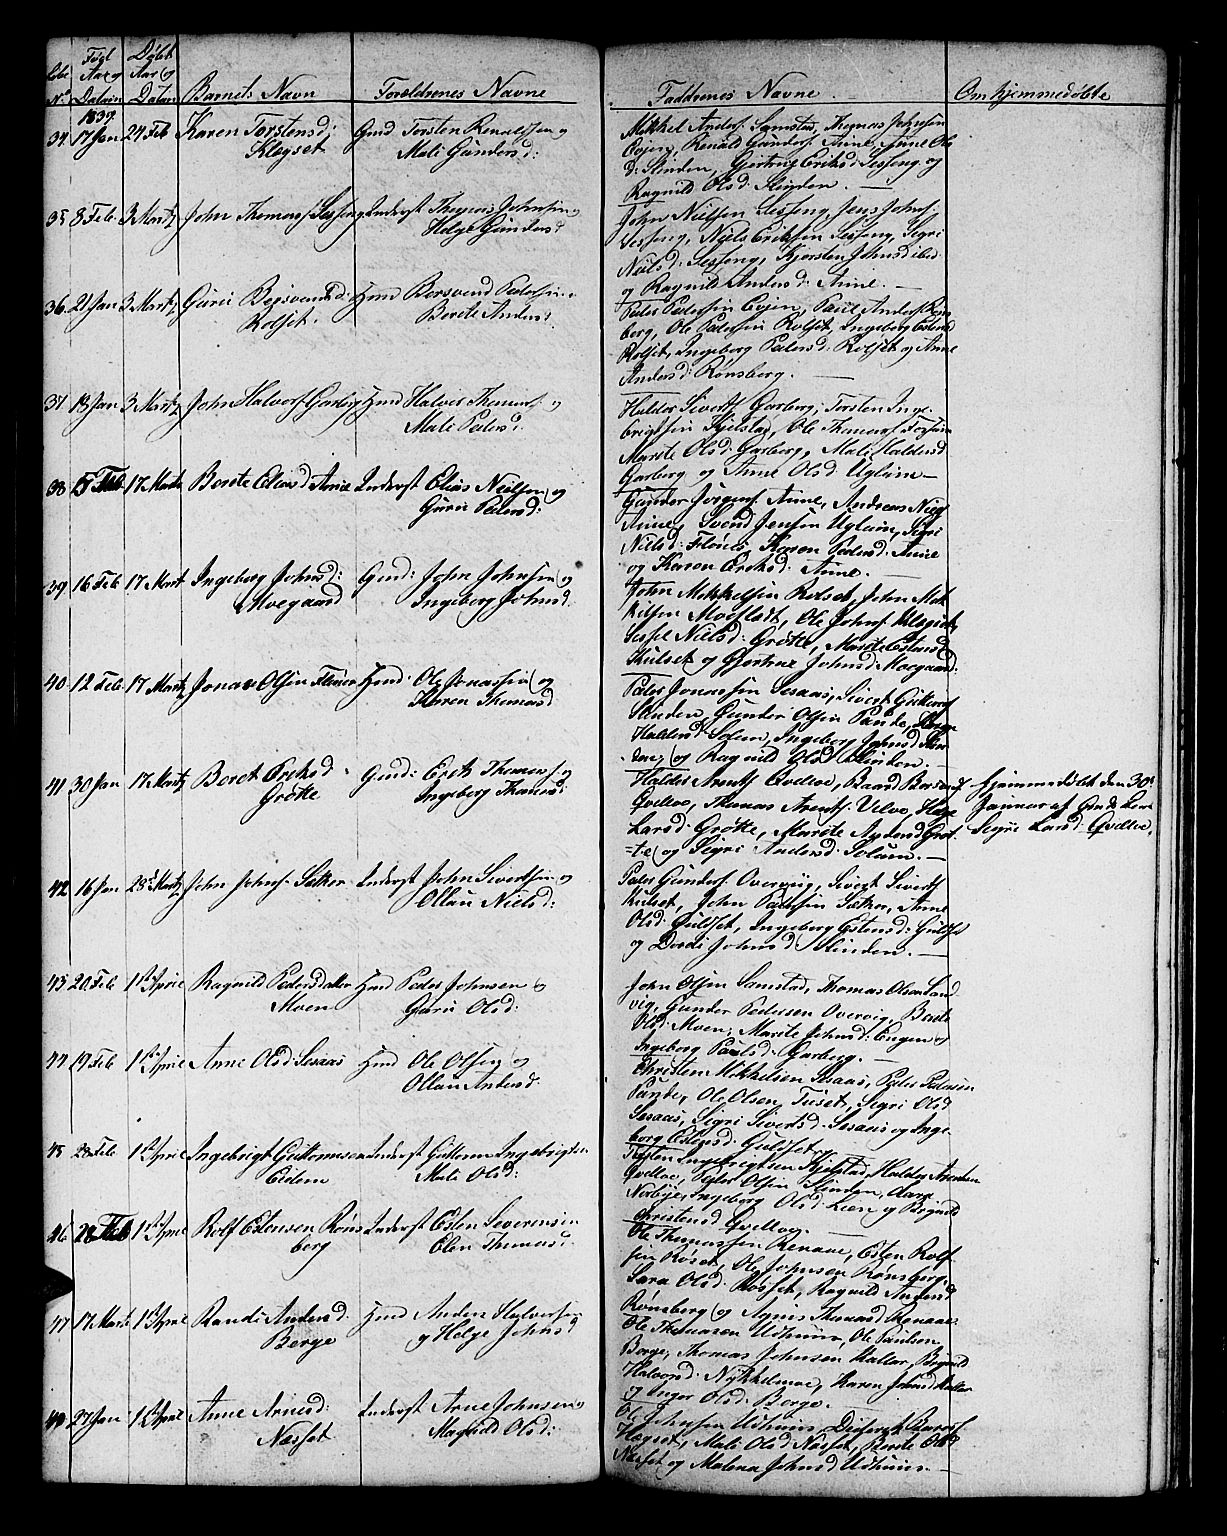 Løbe
N.
Født
Aar og
Datum
Døbt
Aar og
Datum
Barnets Navn
Forældrenes Navne
Faddrenes Navne
Om hjemmedøbte
1837
34 17 Jan 24 Feb Karen Torstensd:
Klegset
Gmd Torsten Renaldsen og
Mali Gundersd:
Mikkel Anders. Samstad, Thomas Johnsen
Evjen, Renald Gunders. Aune, Anne Ols
d: Slinden, Gjertrug Eriksd: Sesseng og
Ragnild Olsd: Slinden.
35 8 Feb. 3 Martz John Thomas. Sesseng Inderst Thomas Johnsen og
Helge Gundersd
John Nielsen Sesseng, Jens Johns.
Sesseng, Niels Eriksen Sesseng, Segri
Nielsd: Sesseng, Kjersten Johnsd ibid
og Ragnild Andersd: Aune.
36. 21 Jan 3 Martz Guru Bersvendsd:
Rolset.
Hmd Bersvend Pedersen
Berete Andersd.
Peder Pedersen Evjen, Paul Anders. Røns
berg, Ole Pedersen Rolset, Ingeborg Estensd
Rolset, Ingeborg Pedersd: Rolset og Anne
Andersd: Rønsberg.
37 18 Jan 3 Martz John Halvors. Garberg Hmd Halvor Thomas. og
Mali Pedersd.
Haldor Siverts. Garberg, Torsten Inge-
brigtsen Kjelstad, Ole Thomas.
Marite Olsd: Garberg, Mali Haldorsd
Garberg og Anne Olsd: Uglum
38 15 Feb 17 Martz Berete Eliasd Aune Inderst Elias Nielsen og
Guru Pedersd:
Gunder Jørgens. Aune, Andreas
Aune, Svend Jensen Uglum, Segri
Nielsd: Flønes Karen Pedersd: Aune
og Karen Eriksd: Aune.
39 16 Feb 17 Mart Ingeborg Johnsd:
Moegaard
Gmd: John Johnsen og
Ingeborg Johnsd
John Mikkelsen Rolset, John Mik
kelsen Moeslødt, Ole Johns. Klegset,
Sessel Nielsd: Grøtte, Marite Estensd
Kulset og Gjertrue Johnsd: Moegaard.
40 12 Feb 17 Martz Jonas Olsen Flønes Hmd Ole Jonassen og
Karen Thomasd
Peder Jonassen Sesaas, Sivert Guttorms.
Slinden, Gunder Olsen Pande,
Haldorsd: Solem, Ingeborg Johnsd Slin
den, og Ragnild Olsd: Slinden.
41 30 Jan 17 Martz Beret Eriksd
Grøtte
Gmd: Erik Thomas. og
Ingeborg Thomasd:
Haldor Arents. Qvelloe, Baard Bersvends.
Qvelloe, Thomas Arents. Velve,
Larsd: Grøtte, Marite Andersd Grøt
=te og Segri Andersd: Solum.
Hjemmedøbt den 30.
Januar af
Segri Larsd: Qvelloe.
42 16 Jan 28 Martz John Johns. Sæther Inderst John Sivertsen og
Ollau Nielsd:
Peder Gunders. Overvig, Sivert Siverts.
Kulset, John Pedersen Sæther, Anne
Olsd: Guldset, Ingeborg Estensd: Guldset
og Dordi Johnsd: Slinden.
43 20 Feb 1st Aprie Ragnild Pedersdatter
Moen
Hmd Peder Johnsen og
Guru Olsd:
John Olsen Samstad, Thomas Olsen Sand
vig, Gunder Pedersen Overvig, Berete
Olsd: Moen, Marite Johnsd: Engen og
Ingeborg Paulsd: Garberg.
44 19 Feb 1st Aprie Anne Olsd Sesaas Hmd Ole Olsen og
Ollau Andersd:
Christen Mikkelsen Sesaas, Peder Pedersen
Pande, Ole Olsen Tuset, Segri Olsd
Sesaas, Segri Sivertsd: Sesaas og Inge-
borg Estensd: Guldset
45 28 Feb 1st Aprie Ingebrigt Guttormsen
Eidem
Inderst Guttorm Ingebrigtsen
Mali Olsd:
Torsten Ingebrigtsen Kjelstad, Haldor Arentsen
Qvelloe, Peder Olsen Slinden,
Norbye, Ingeborg Olsd: Lien og Regnild
Christensd Qvelloe.
46 28 Feb 1st Aprie Rolf Estensen Røns
berg
Inderst Esten Severinsen
Elen Thomasd:
Ole Thomassen Renaae, Esten Rolf
sen Røset, Ole Johnsen Rønsberg,
Sara Olsd: Røsset, Ragnild Andersd
Rønsberg og Agnis Thomasd Renaae
47 17 Mart 1st Aprie Randi Andersd:
Berge
Hmd Anders Halvorsen
og Helge Johnsd
Ole Thomasen Udhuus, Ole Paulsen
Berge, Thomas Johnsen Kallar, Regnild
Halvorsd: Nykkelmoe, Karen Johnsd Kallar
og Inger Olsd: Berge.
48 27 Jan 1st Aprie Anne Arnesd:
Næsset
Inderst Arne Johnsen og
Magnild Olsd:
Ole Johnsen Udhuus
Hegset, Mali Olsd Næsset, Berete Olsd
Næsset og Malena Johnsd Udhuus.